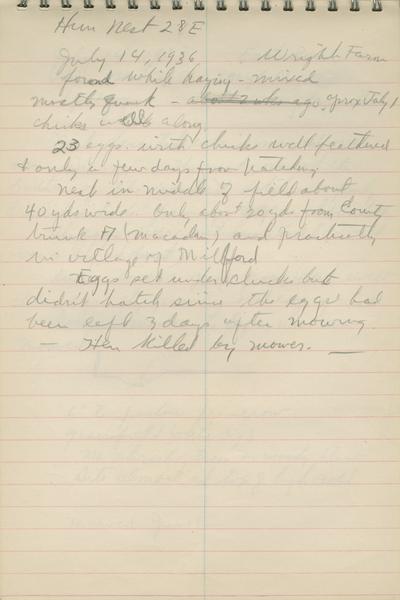 Hun Nest 28E
July 14, 1936 Wright Farm
found while haying - mixed
mostly quack - about 2 wks ago, aprox July 1
chicks well along
23 eggs with chicks well feathered
& only a few days from hatching
Nest in middle of field about
40 yds wide. Only about 20 yds from County
trunk A (macadam) and practically
in village of Milford
Eggs set under clucks but
didn't hatch since the eggs had
been left 3 days after mowing.
— Hen killed by mower. —